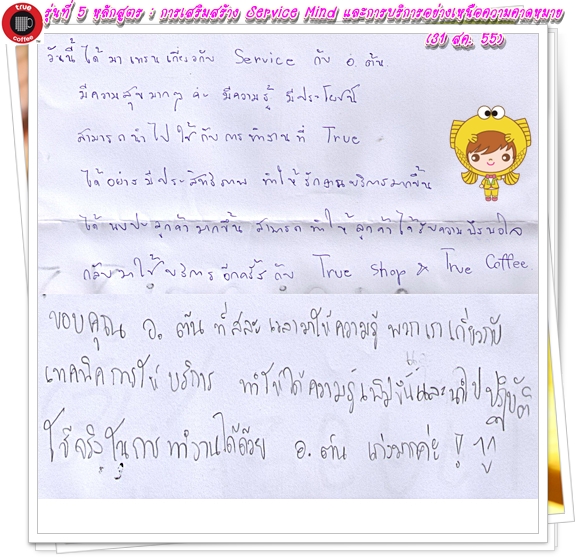 true
coffee
รุ่นที่ 5 หลักสูตร : การเสริมสร้าง Service Mind และการบริการอย่างเหนือความคาดหมาย
(31 สค. 55)
วันนี้ ได้ มา เทรน เกี่ยวกับ Service กับ อ. ต้น
มีความสุขมากๆ ค่ะ มีความรู้ มีประโยชน์
สามารถนำไปใช้กับการทำงานที่ True
ได้อย่างมีประสิทธิภาพ ทำให้รักงานบริการมากขึ้น
ได้พบปะลูกค้ามากขึ้น สามารถทำให้ลูกค้าได้รับความพึงพอใจ
กลับมาใช้บริการอีกครั้งกับ True Shop & True Coffee.
ขอบคุณ อ. ต้น ที่สละเวลามาให้ความรู้ พวกเราเกี่ยวกับ
เทคนิคการให้บริการ ทำให้ได้ความรู้เพิ่มขึ้นและนำไปปฏิบัติ
ใช้จริงในการทำงานได้ด้วย อ. ต้น เก่งมากค่ะ